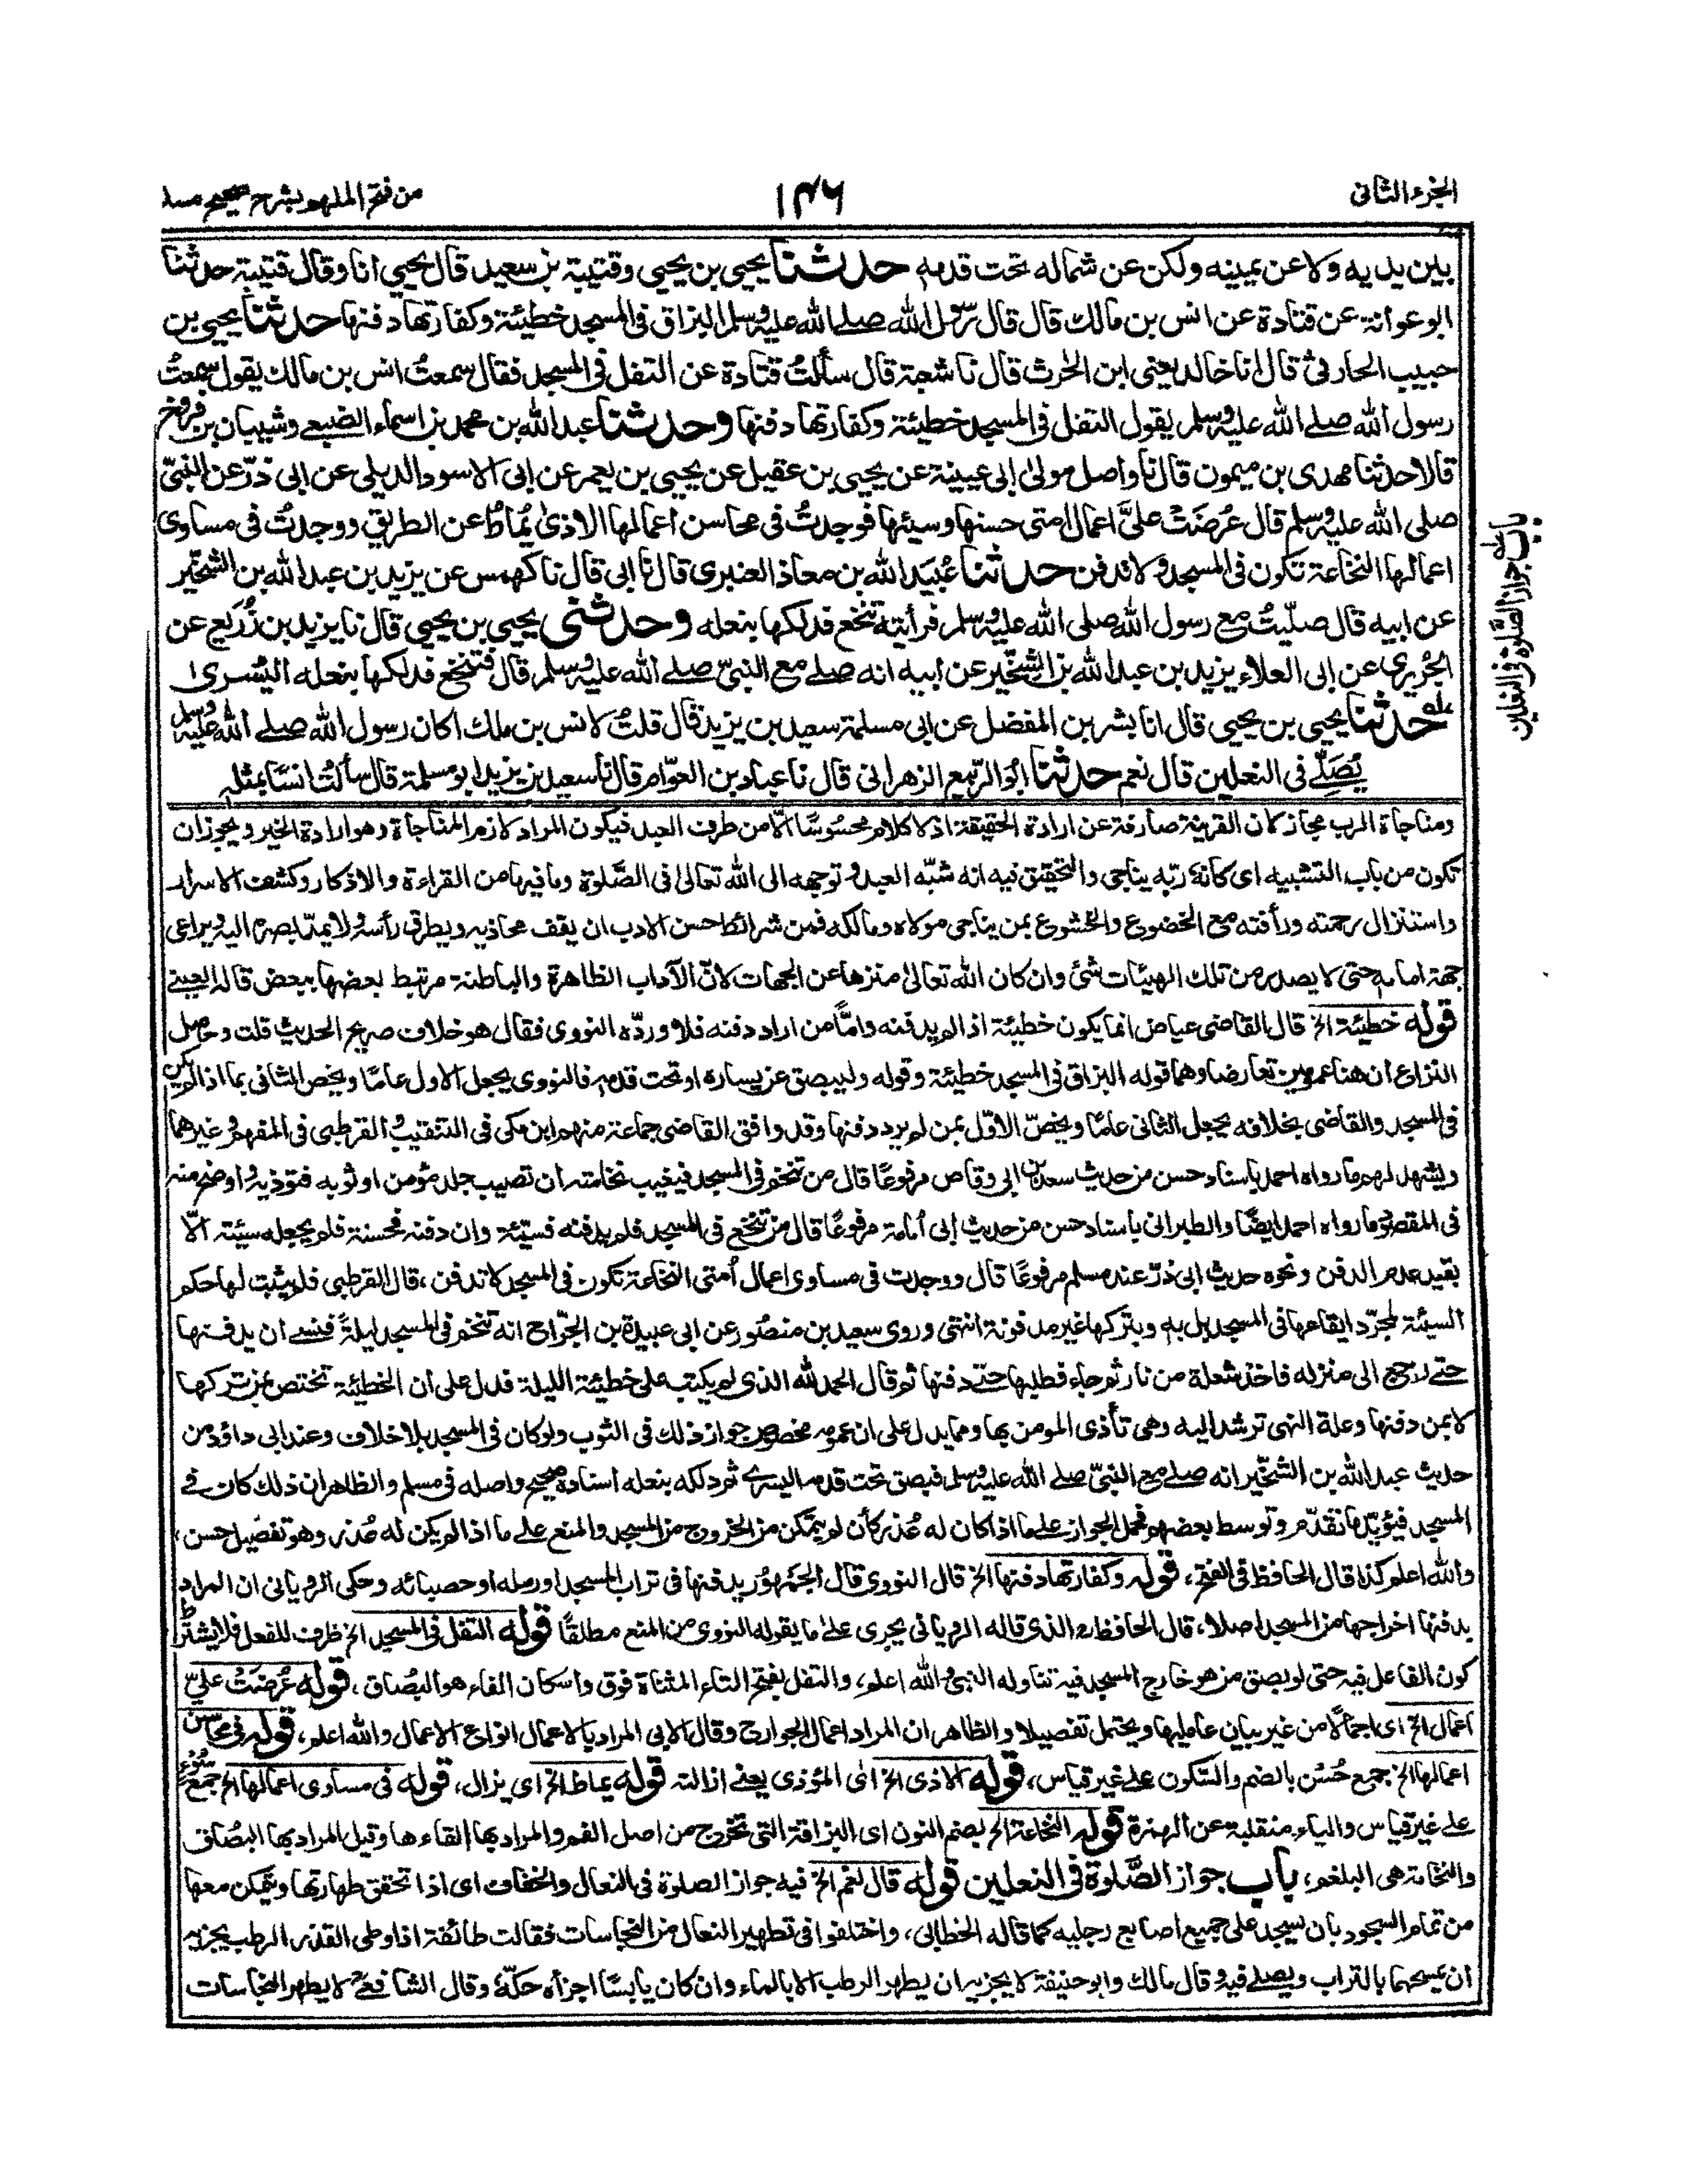 الجزء الثانى
۱۴۶
من فتح الملهم بشرح صحيح مسلم
بين يديه ولا عن يمينه ولكن عن شماله تحت قدمه حدثنا يحيى بن يحيى وقتيبة بن سعيد قال يحيى انا وقال قتيبة حدثنا
ابو عوانة عن قتادة عن انس بن مالك قال قال رسول الله صلے الله عليه وسلم البزاق فى المسجد خطيئة وكفارتها دفنها حدثنا يحيى بن
حبيب الحارثى قال انا خالد يعنى ابن الحٰرث قال نا شعبة قال سألتُ قتادة عن التفل فى المسجد فقال سمعتُ انس بن مالك يقول سمعتُ
رسول الله صلے الله عليه وسلم يقول التفل فى المسجد خطيئة وكفارتها دفنها وحدثنا عبد الله بن محمد بن اسماء الضبعے وشيبان بن فروخ
قالا حدثنا مهدى بن ميمون قال نا واصل مولىٰ ابى عيينة عن يحيى بن عقيل عن يحيى بن يعمر عن ابى الاسود الديلى عن ابى ذرّ عن النبىّ
صلى الله عليه وسلم قال عُرضَتْ علىَّ اعمال امتى حسنها وسيئها فوجدتُ فى محاسن اعمالها الاذىٰ يُماطُ عن الطريق ووجدتُ فى مساوى
اعمالها النخاعة تكون فى المسجد ولا تدفن حدثنا عُبيد الله بن معاذ العنبرى قال نا ابى قال نا كهمس عن يزيد بن عبد الله بن الشخّير
عن ابيه قال صلّيتُ مع رسول الله صلى الله عليه وسلم فرأيته تنخع فدلكها بنعله وحدثنى يحيى بن يحيى قال نا يزيد بن زُرَيع عن
الجُريرى عن ابى العلاء يزيد بن عبد الله بن الشخّير عن ابيه انه صلے مع النبىّ صلے الله عليه وسلم قال فتنخع فدلكها بنعله اليُسرىٰ
حدثنا يحيى بن يحيى قال انا بشر بن المفضل عن ابى مسلمة سعيد بن يزيد قال قلتُ لانس بن مٰلك اكان رسول الله صلے الله عليه وسلم
يُصَلِّے فى النعلين قال نعم حدثنا ابو الرّبيع الزهرانى قال نا عباد بن العوّام قال نا سعيد بن يزيد ابو مسلمة قال سألتُ انسًا بمثله
باب جواز الصلوة فى النعلين
ومناجاة الرب مجاز لان القرينة صارفة عن ارادة الحقيقة اذ لا كلام محسُوسًا الّا من طرف العبد فيكون المراد لازم المناجاة وهو ارادة الخير ويجوز ان
تكون من باب التشبيه اى كأنه ربّه يناجى والتحقيق فيه انه شبّه العبد وتوجهه الى الله تعالىٰ فى الصَّلوة وما فيها من القراءة والاذكار وكشف الاسرار
واستنزال رحمته ورأفته مع الخضوع والخشوع بمن يناجى مولاه ومالكه فمن شرائط حسن الادب ان يقف محاذيه ويطرق رأسه ولا يمدّ بصره اليه ويراعى
جهة امامه حتى لا يصدر من تلك الهيئات شئ وان كان الله تعالىٰ منزها عن الجهات لانّ الآداب الظاهرة والباطنة مرتبط بعضها ببعض قاله العينے
قوله خطيئة الخ قال القاضى عياض انما يكون خطيئة اذا لم يدفنه وامّا من اراد دفنه فلا وردّه النووى فقال هو خلاف صريح الحديث قلت وحاصل
النزاع ان هنا عمومين تعارضا وهما قوله البزاق فى المسجد خطيئة وقوله وليبصق عن يساره او تحت قدمه فالنووى يجعل الاول عامًا ويخص الثانى بما اذا لم يكن
فى المسجد والقاضى بخلافه يجعل الثانى عامًا ويخصّ الاوّل بمن لم يرد دفنها وقد وافق القاضى جماعة منهم ابن مكى فى التنقيب والقرطبى فى المفهم وغيرهما
ويشهد لهم ما رواه احمد باسناد حسن من حديث سعد بن ابى وقاص مرفوعًا قال من تنخم فى المسجد فيغيب نخامته ان تصيب جلد مؤمن او ثوبه فتؤذيه واوضح منه
فى المقصود ما رواه احمد ايضًا والطبرانى باسناد حسن من حديث ابى أمامة مرفوعًا قال من تنخع فى المسجد فلم يدفنه فسيّئة وان دفنه فحسنة فلم يجعله سيّئة الّا
بقيد عدم الدفن ونحوه حديث ابى ذرّ عند مسلم مرفوعًا قال ووجدت فى مساوى اعمال أمتى النخاعة تكون فى المسجد لا تدفن، قال القرطبى فلم يثبت لها حكم
السيئة لمجرّد ايقاعها فى المسجد بل به وبتركها غير مدفونة انتهى وروى سعيد بن منصُور عن ابى عبيدة بن الجرّاح انه تنخم فى المسجد ليلةً فنسے ان يدفنها
حتے رجع الى منزله فاخذ شعلة من نار ثم جاء فطلبها حتے دفنها ثم قال الحمد لله الذى لم يكتب على خطيئة الليلة فدل على ان الخطيئة تختص بمن تركها
لا بمن دفنها وعلة النهى ترشد اليه وهى تأذى المومن بها ومما يدل على ان عمومه مخصوص جواز ذلك فى الثوب ولو كان فى المسجد بلا خلاف وعند ابى داؤد من
حديث عبد الله بن الشخّير انه صلے مع النبىّ صلے الله عليه وسلم فبصق تحت قدمه اليسرے ثم دلكه بنعله اسناده صحيح واصله فى مسلم والظاهر ان ذلك كان فے
المسجد فيؤيّد ما تقدّم وتوسط بعضهم فحمل الجواز على ما اذا كان له عُذر كأن لم يتمكن من الخروج من المسجد والمنع علے ما اذا لم يكن له عُذر وهو تفصيل حسن،
والله اعلم كذا قال الحافظ فى الفتح، قوله وكفارتها دفنها الخ قال النووى قال الجمهُور يدفنها فى تراب المسجد او رمله او حصبائه وحكى الرويانى ان المراد
بدفنها اخراجها من المسجد اصلا، قال الحافظ الذى قاله الرويانى يجرى علىٰ ما يقوله النووى من المنع مطلقًا قوله التفل فى المسجد الخ ظرف للفعل فلا يشترط
كون الفاعل فيه حتى لو بصق من هو خارج المسجد فيه تناوله النهى والله اعلم، والتفل بفتح التاء المثناة فوق واسكان الفاء هو البُصاق، قوله عُرضَتْ علىّ
اعمال الخ اى اجمالًا من غير بيان عامليها ويحتمل تفصيلا والظاهر ان المراد اعمال الجوارح وقال الابى المراد بالاعمال انواع الاعمال والله اعلم، قوله فى محاسن
اعمالها الخ جمع حُسْن بالضم والسّكون علے غير قياس، قوله الاذى الخ اى المؤذى يعنے ازالته قوله يماط الخ اى يزال، قوله فى مساوى اعمالها الخ جمع سُوْء
علے غير قياس والياء منقلبة عن الهمزة قوله النخاعة الخ بضم النون اى البزاقة التى تخرج من اصل الفم والمراد بها القاءها وقيل المراد بها البُصاق
والنخامة هى البلغم، باب جواز الصَّلوة فى النعلين قوله قال نعم الخ فيه جواز الصلوة فى النعال والخفاف اى اذا تحقق طهارتها ويتمكن معها
من تمام السجود بان يسجد على جميع اصابع رجليه كما قاله الخطابى، واختلفوا فى تطهير النعال من النجاسات فقالت طائفة اذا وطى القذر الرطب يجزيه
ان يمسحهما بالتراب ويصلے فيه وقال مالك وابو حنيفة لا يجزيه ان يطهر الرطب الا بالماء وان كان يابسًا اجزأه حكّهُ وقال الشافعىؒ لا يطهر النجاسات